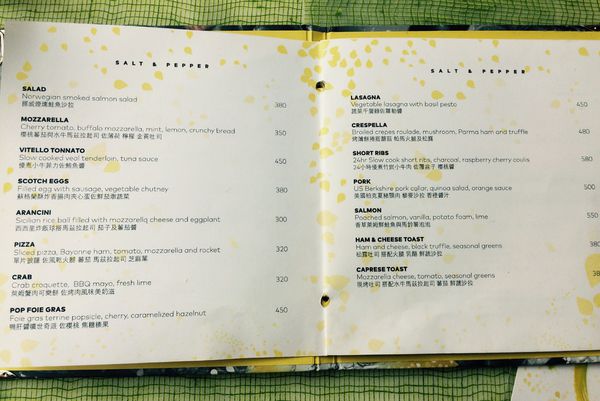 SALT & PEPPER
SALAD
Norwegian smoked salmon salad 380
挪威煙燻鮭魚沙拉
MOZZARELLA
Cherry tomato, buffalo mozzarella, mint, lemon, crunchy bread 350
櫻桃蕃茄與水牛馬茲拉起司 佐薄荷 檸檬 金黃吐司
VITELLO TONNATO
Slow cooked veal tenderloin, tuna sauce 450
慢煮小牛菲力佐鮪魚醬
SCOTCH EGGS
Filled egg with sausage, vegetable chutney 380
蘇格蘭酥炸香腸肉夾心蛋佐鮮蔬
ARANCINI
Sicilian rice ball filled with mozzarella cheese and eggplant 300
西西里炸飯球搭馬茲拉起司 茄子及蕃茄醬
PIZZA
Sliced pizza, Bayonne ham, tomato, mozzarella and rocket 320
單片披薩 佐風乾火腿 蕃茄 馬茲拉起司 芝麻葉
CRAB
Crab croquette, BBQ mayo, fresh lime 320
萊姆蟹肉可樂餅 佐烤肉風味美奶滋
POP FOIE GRAS
Foie gras terrine popsicle, cherry, caramelized hazelnut 450
鴨肝醬 佐櫻桃 焦糖榛果
SALT & PEPPER
LASAGNA
Vegetable lasagna with basil pesto 450
蔬菜千層麵佐羅勒醬
CRESPELLA
Broiled crepes roulade, mushroom, Parma ham and truffle 480
烤薄餅捲菇 帕馬火腿及松露
SHORT RIBS
24hr Slow cook short ribs, charcoal, raspberry cherry coulis 580
24小時慢煮牛小排 佐覆盆子 櫻桃醬
PORK
US Berkshire pork collar, quinoa salad, orange sauce 500
美國柏克夏豬頸肉 藜麥沙拉 香橙醬汁
SALMON
Poached salmon, vanilla, potato foam, lime 550
香草萊姆鮭魚與馬鈴薯泡泡
HAM & CHEESE TOAST
Ham and cheese, black truffle, seasonal greens
松露吐司 搭配火腿 乳酪 鮮蔬沙拉
CAPRESE TOAST
Mozzarella cheese, tomato, seasonal greens
現烤吐司 搭配水牛馬茲拉起司 蕃茄 鮮蔬沙拉